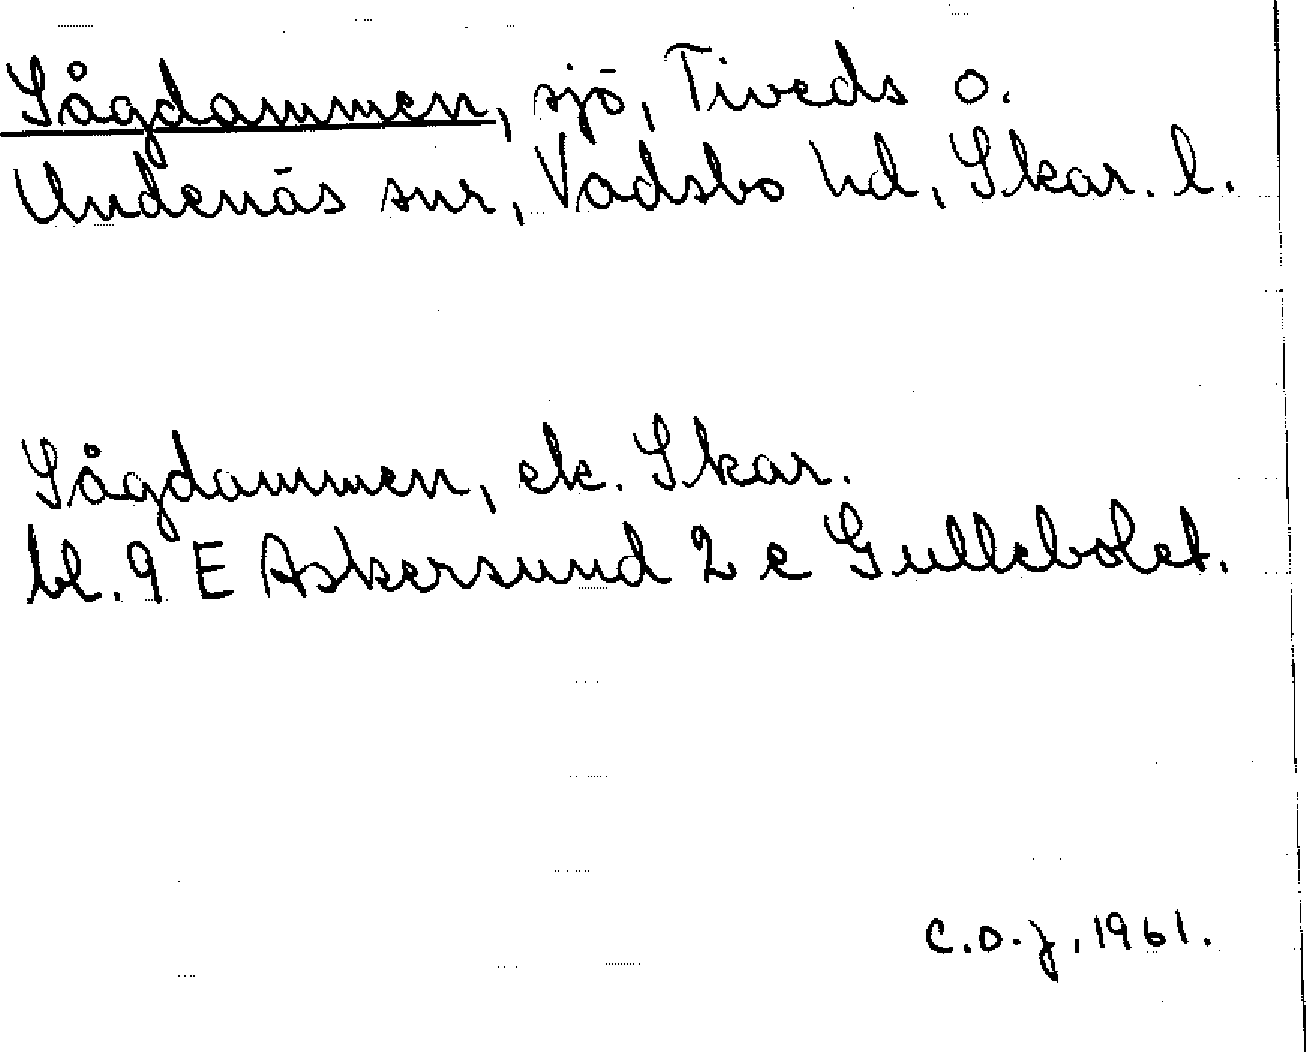 Sågdammen, sjö, Tiveds o.
Undenäs snr, Vadsbo hd, Skar. l.
Sågdammen, ek. Skar.
bl. 9 E Askersund 2 c Gullebolet.
C.O.J. 1961.